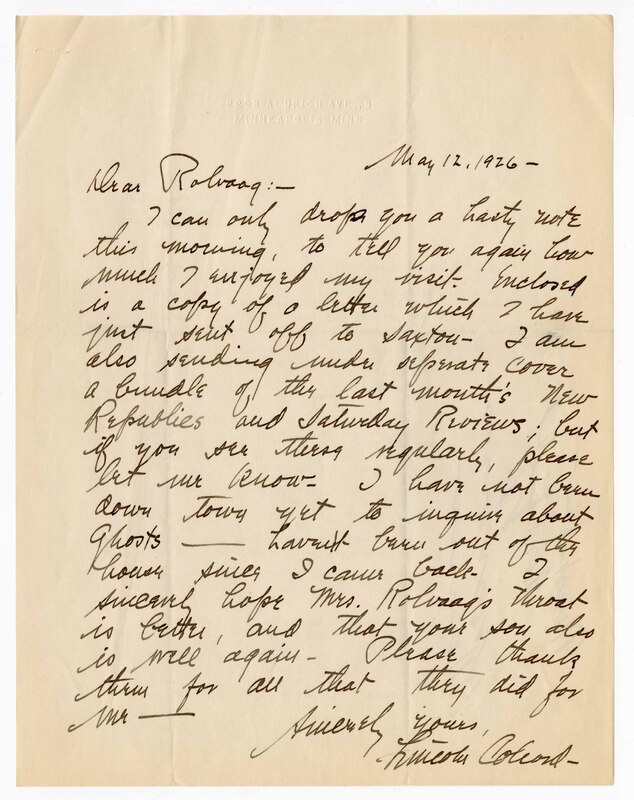 2208 ALDRICH AVE., S.
MINNEAPOLIS, MINN.
May 12, 1926 –
Dear Rolvaag:–
I can only drop you a hasty note
this morning, to tell you again how
much I enjoyed my visit. Enclosed
is a copy of a letter which I have
just sent off to Saxton– I am
also sending under seperate cover
a bundle of the last month's New
Republics and Saturday Reviews; but
if you see these regularly, please
let me know– I have not been
down town yet to inquire about
Ghosts — haven't been out of the
house since I came back– I
sincerely hope Mrs. Rolvaag's throat
is better, and that your son also
is well again– Please thank
them for all that they did for
me —
Sincerely yours,
Lincoln Colcord–